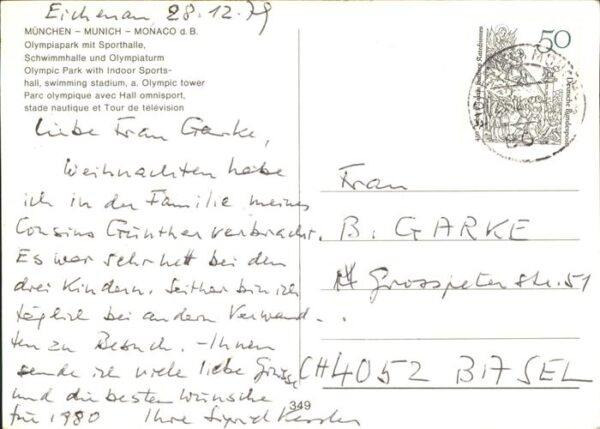 Eichenau, 28.12.79
MÜNCHEN – MUNICH – MONACO d. B.
Olympiapark mit Sporthalle,
Schwimmhalle und Olympiaturm
Olympic Park with Indoor Sports-
hall, swimming stadium, a. Olympic tower
Parc olympique avec Hall omnisport,
stade nautique et Tour de télévision
Liebe Frau Garke,
Weihnachten habe
ich in der Familie meines
Cousins Günther verbracht.
Es war sehr nett bei den
drei Kindern. Seither bin ich
täglich bei andern Verwand-
ten zu Besuch. – Ihnen
sende ich viele liebe Grüsse
und die besten Wünsche
für 1980 Ihre Sigrid
349
50
Deutsche Bundespost
Frau
B. GARKE
Grosspeterstr. 51
CH 4052 BASEL